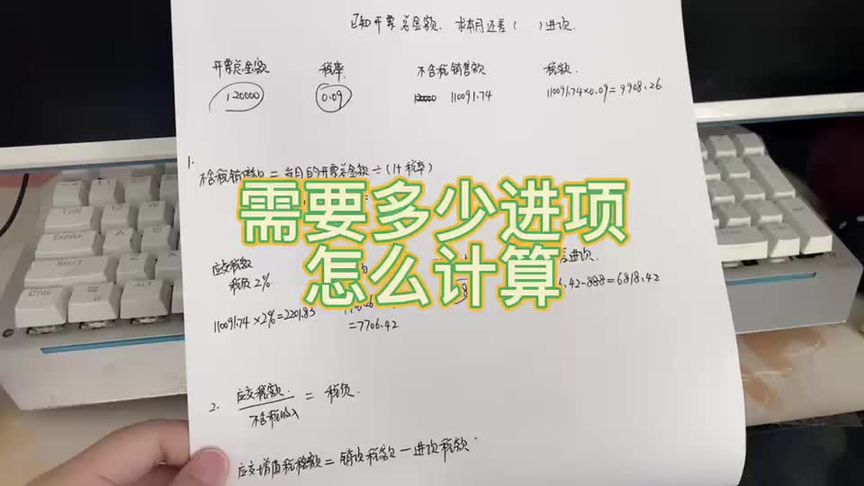 已知开票总金额. 求本月还差( )进项.
开票总金额 税率 不含税销售额 税额.
120000 0.09 110091.74 110091.74×0.09=9908.26
1.
不含税销售额=当月的开票总金额÷(1+税率)
需要多少进项
怎么计算
应交税额
税负2%
进项.
.42-888=6818.42
110091.74×2%=2201.83
=7706.42
2. 应交税额 / 不含税收入 = 税负.
应交增值税税额=销项税额-进项税额.